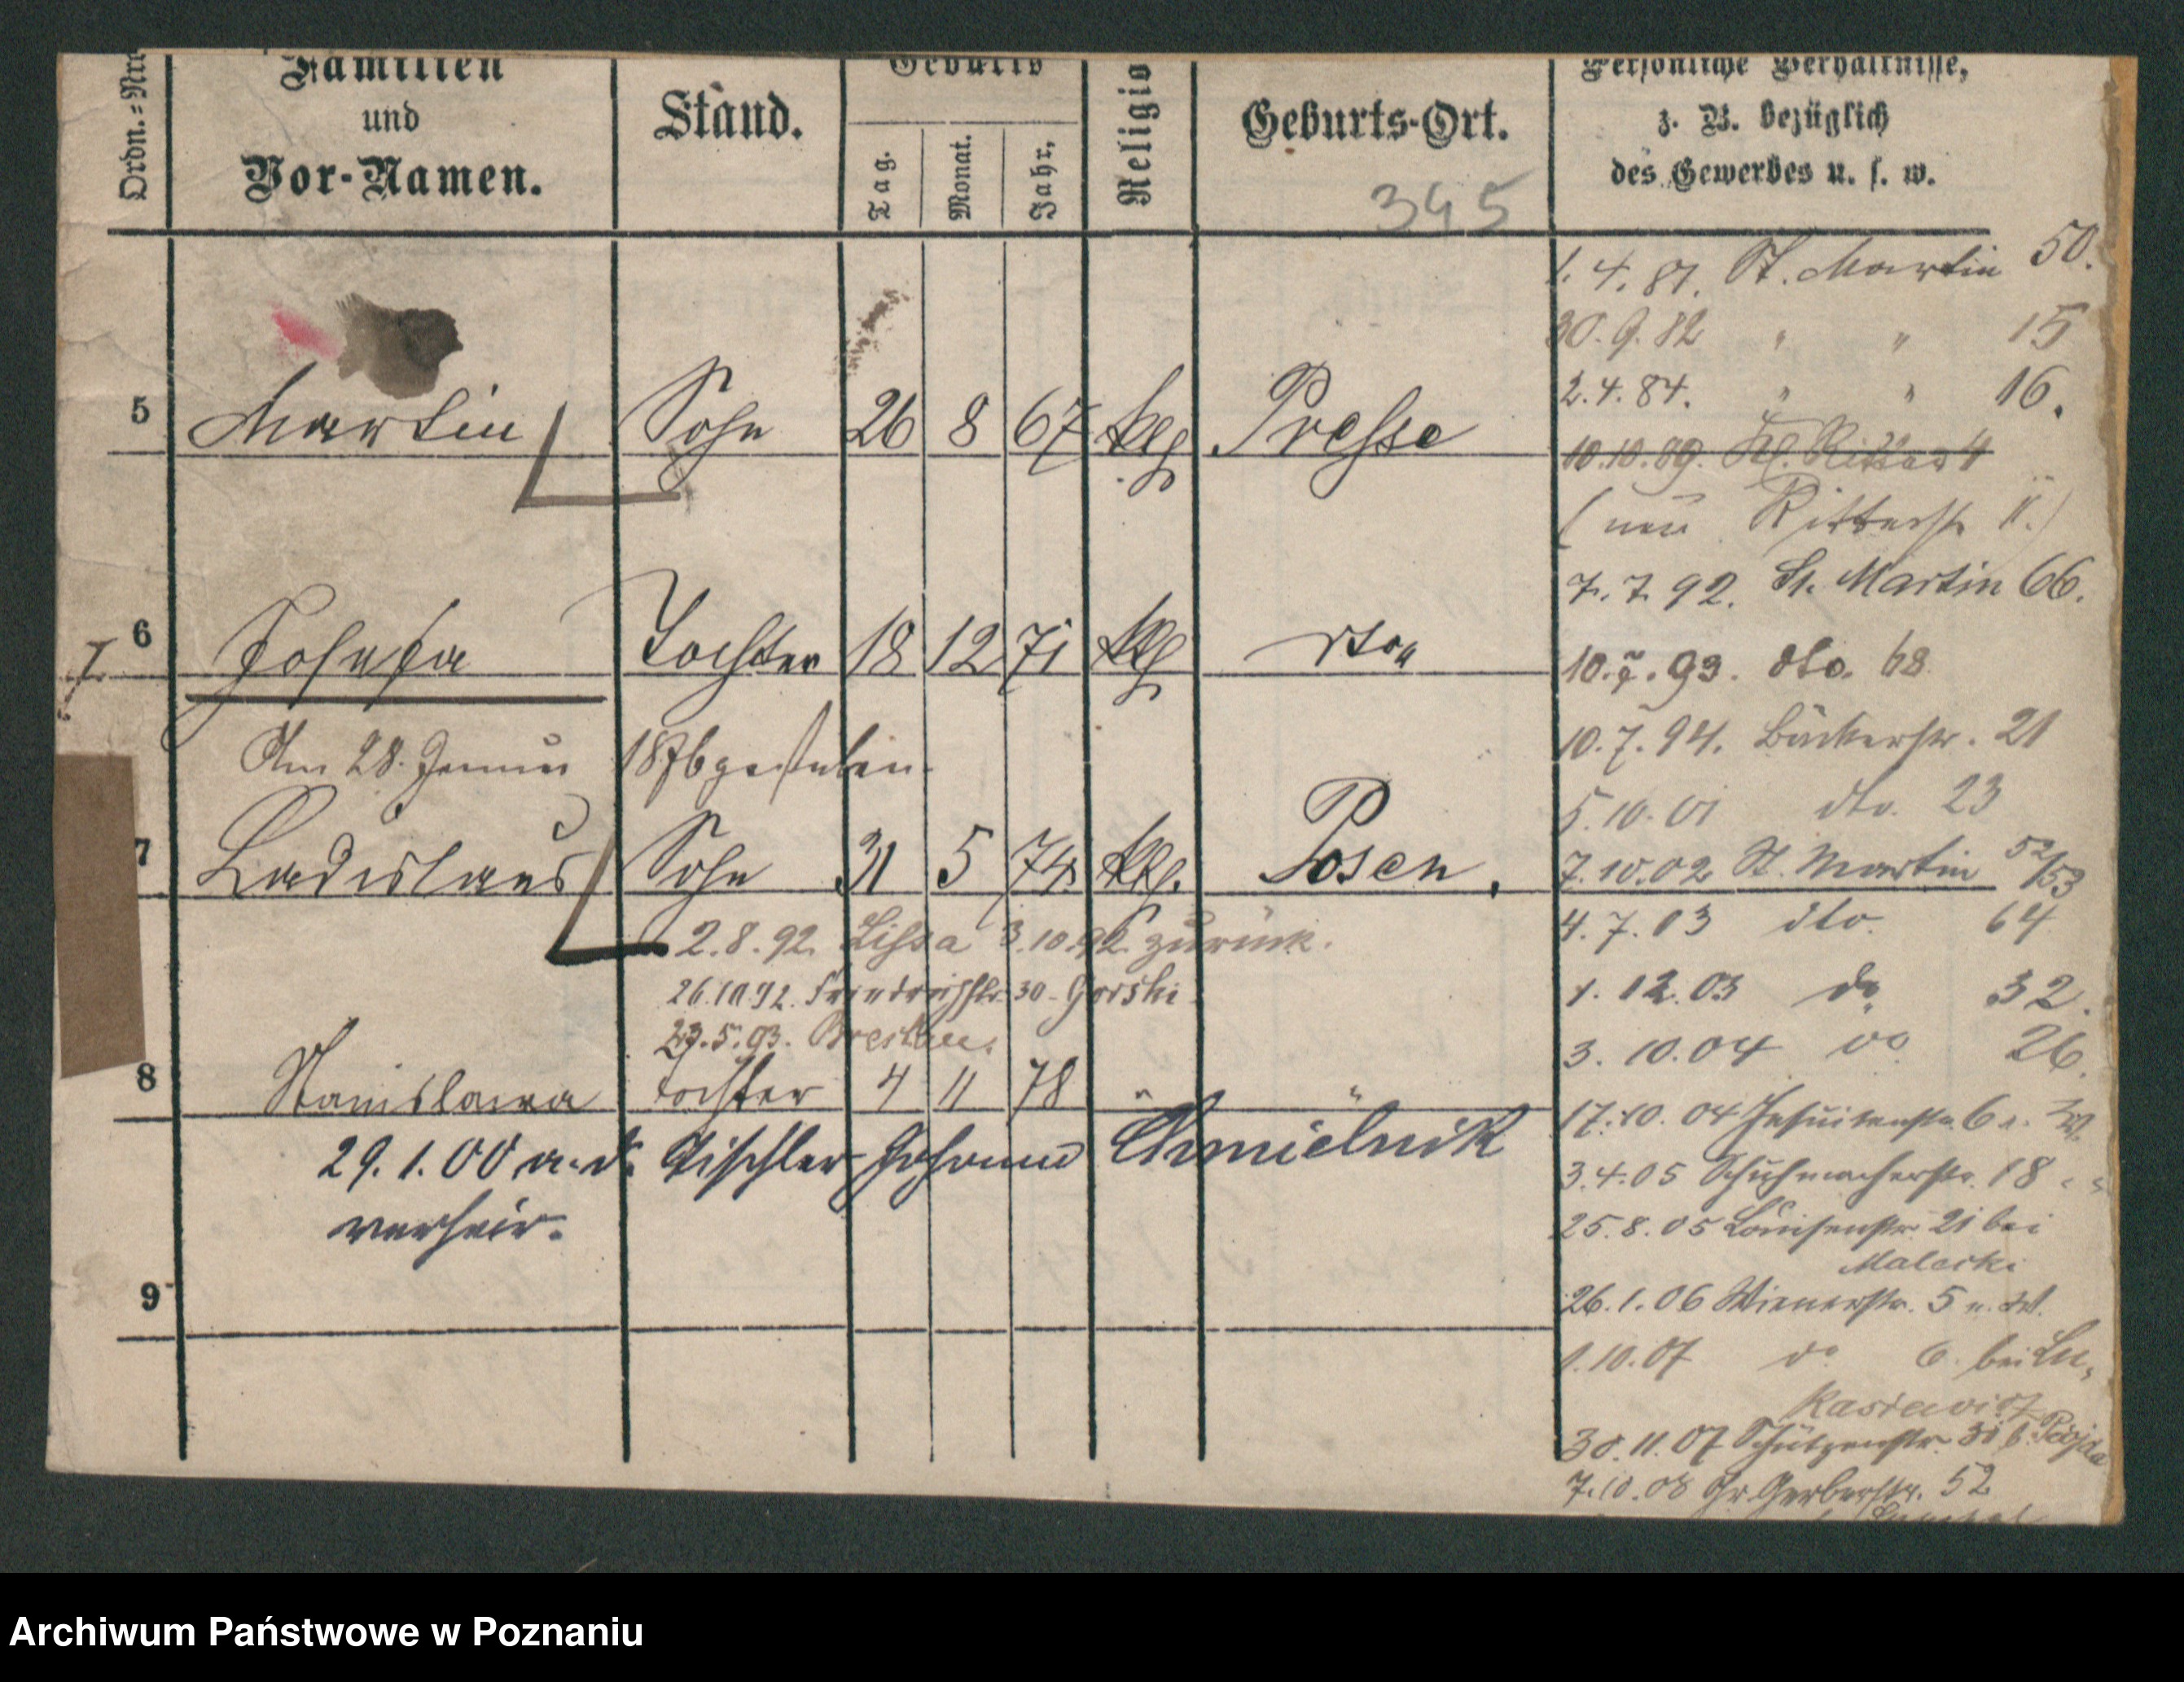 Ordn.=Nr
Familien
und
Vor-Namen.
Stand.
Geburts
Tag.
Monat.
Jahr,
Religio
Geburts-Ort.
345
Persönliche Verhältnisse,
z. B. bezüglich
des Gewerbes u. s. w.
5 Martin Sohn 26 8 67 klg Presse
6 Josepha Tochter 18 12 71 klg dto
Am 28. Januar 1876 gestorben.
7 Ladislaus Sohn 31 5 74 klg. Posen.
2.8.92. Lissa 3.10.92. zurück.
26.10.92. Friedrichstr. 30 - Gorski
29.5.93. Breslau.
8 Stanislawa Tochter 4 11 78 " "
29.1.00 a. d. Tischler Johann Chmielnik
verheir.
9
1.4.81. St. Martin 50.
30.9.82 " " 15
2.4.84. " " 16.
10.10.89. Kl. Ritter 4
(neu Ritterstr. 11.)
7.7.92. St. Martin 66.
10.7.93. dto. 68
10.7.94. Bäckerstr. 21
5.10.01 dto. 23
7.10.02 St. Martin 52/53
4.7.03 dto. 64
1.12.03 do 32.
3.10.04 do 26.
17.10.04 Jesuitenstr. 6
3.4.05 Schuhmacherstr. 18 " "
25.8.05 Louisenstr. 21 bei
Malecki
26.1.06 Wienerstr. 5
1.10.07 do 6. bei Lu-
kasiewicz
30.11.07 Schützenstr. 31 b.
7.10.08 Gr. Gerberstr. 52
Archiwum Państwowe w Poznaniu